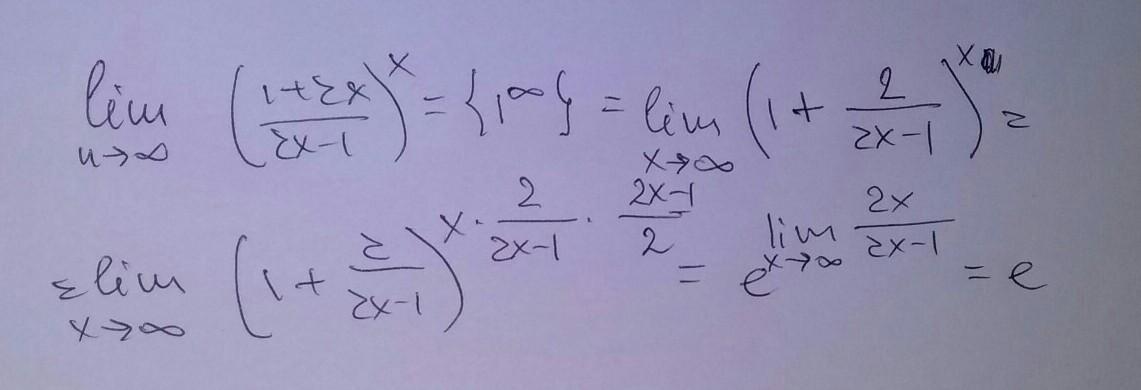 lim n→∞ ((1+2x)/(2x-1))^x = {1^∞} = lim x→∞ (1 + 2/(2x-1))^x =
= lim x→∞ (1 + 2/(2x-1))^(x · 2/(2x-1) · (2x-1)/2) = e^(lim x→∞ 2x/(2x-1)) = e